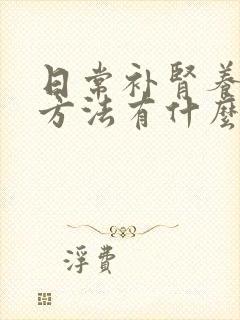 日常补肾养
方法有什麼
浮費